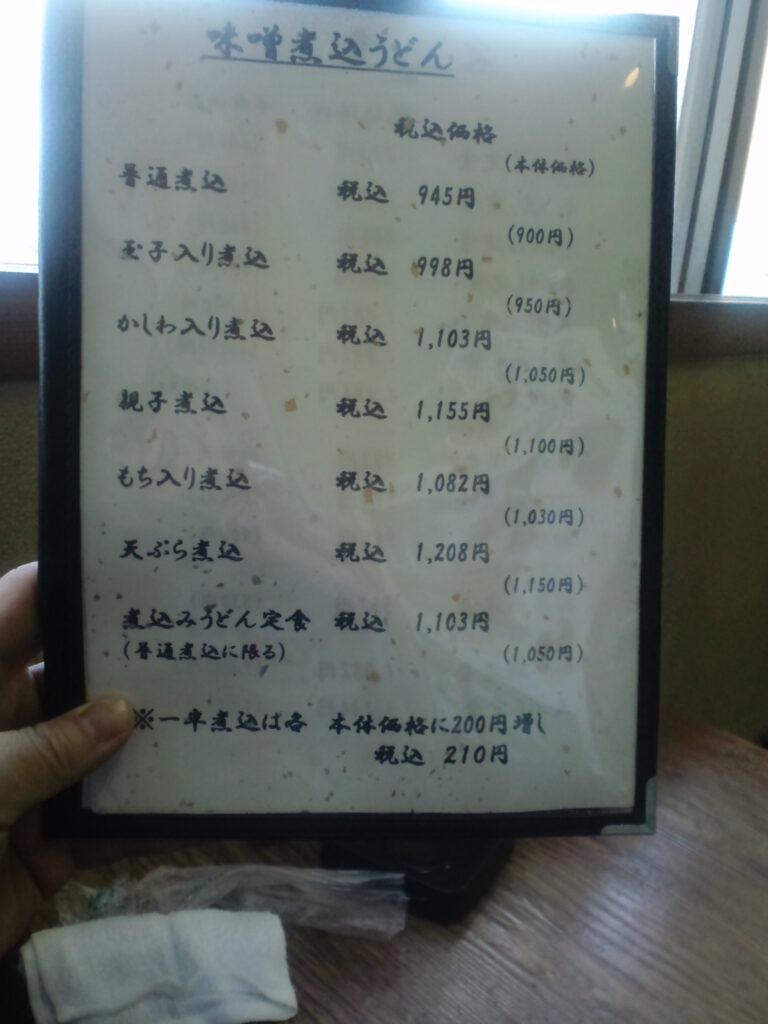 味噌煮込うどん
税込価格
(本体価格)
普通煮込 税込 945円
(900円)
玉子入り煮込 税込 998円
(950円)
かしわ入り煮込 税込 1,103円
(1,050円)
親子煮込 税込 1,155円
(1,100円)
もち入り煮込 税込 1,082円
(1,030円)
天ぷら煮込 税込 1,208円
(1,150円)
煮込みうどん定食 税込 1,103円
(普通煮込に限る)
(1,050円)
※一半煮込は各 本体価格に200円増し
税込 210円